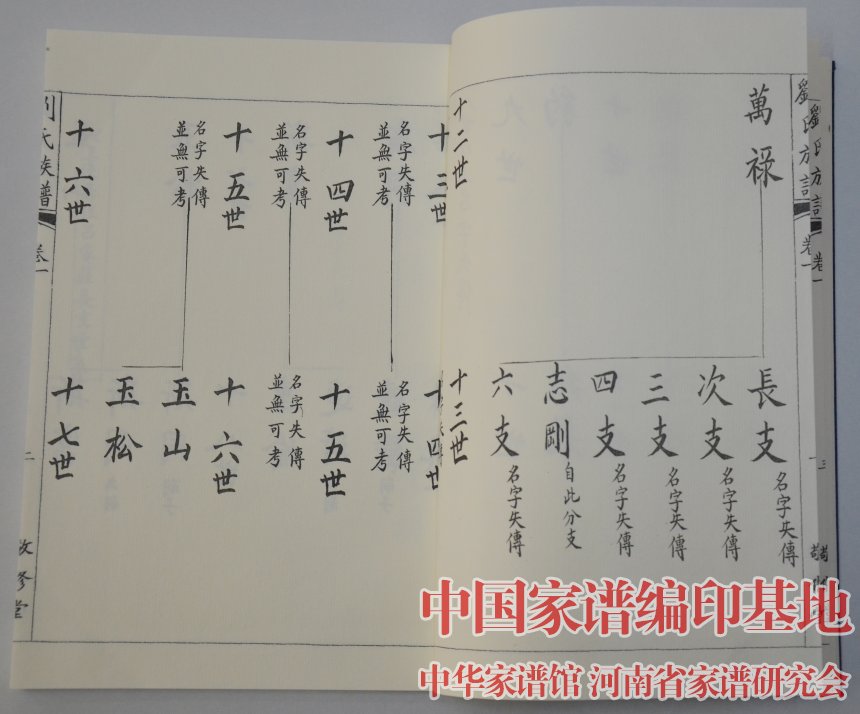 劉氏族譜
卷一
三
萬祿
十二世
長支
名字失傳
次支
名字失傳
三支
名字失傳
四支
名字失傳
志剛
自此分支
六支
名字失傳
十三世
十三世
名字失傳
並無可考
十四世
名字失傳
並無可考
十五世
名字失傳
並無可考
十六世
十四世
名字失傳
並無可考
十五世
名字失傳
並無可考
十六世
玉山
玉松
十七世
劉氏族譜
卷一
二
敬修堂
中国家谱编印基地
中华家谱馆 河南省家谱研究会